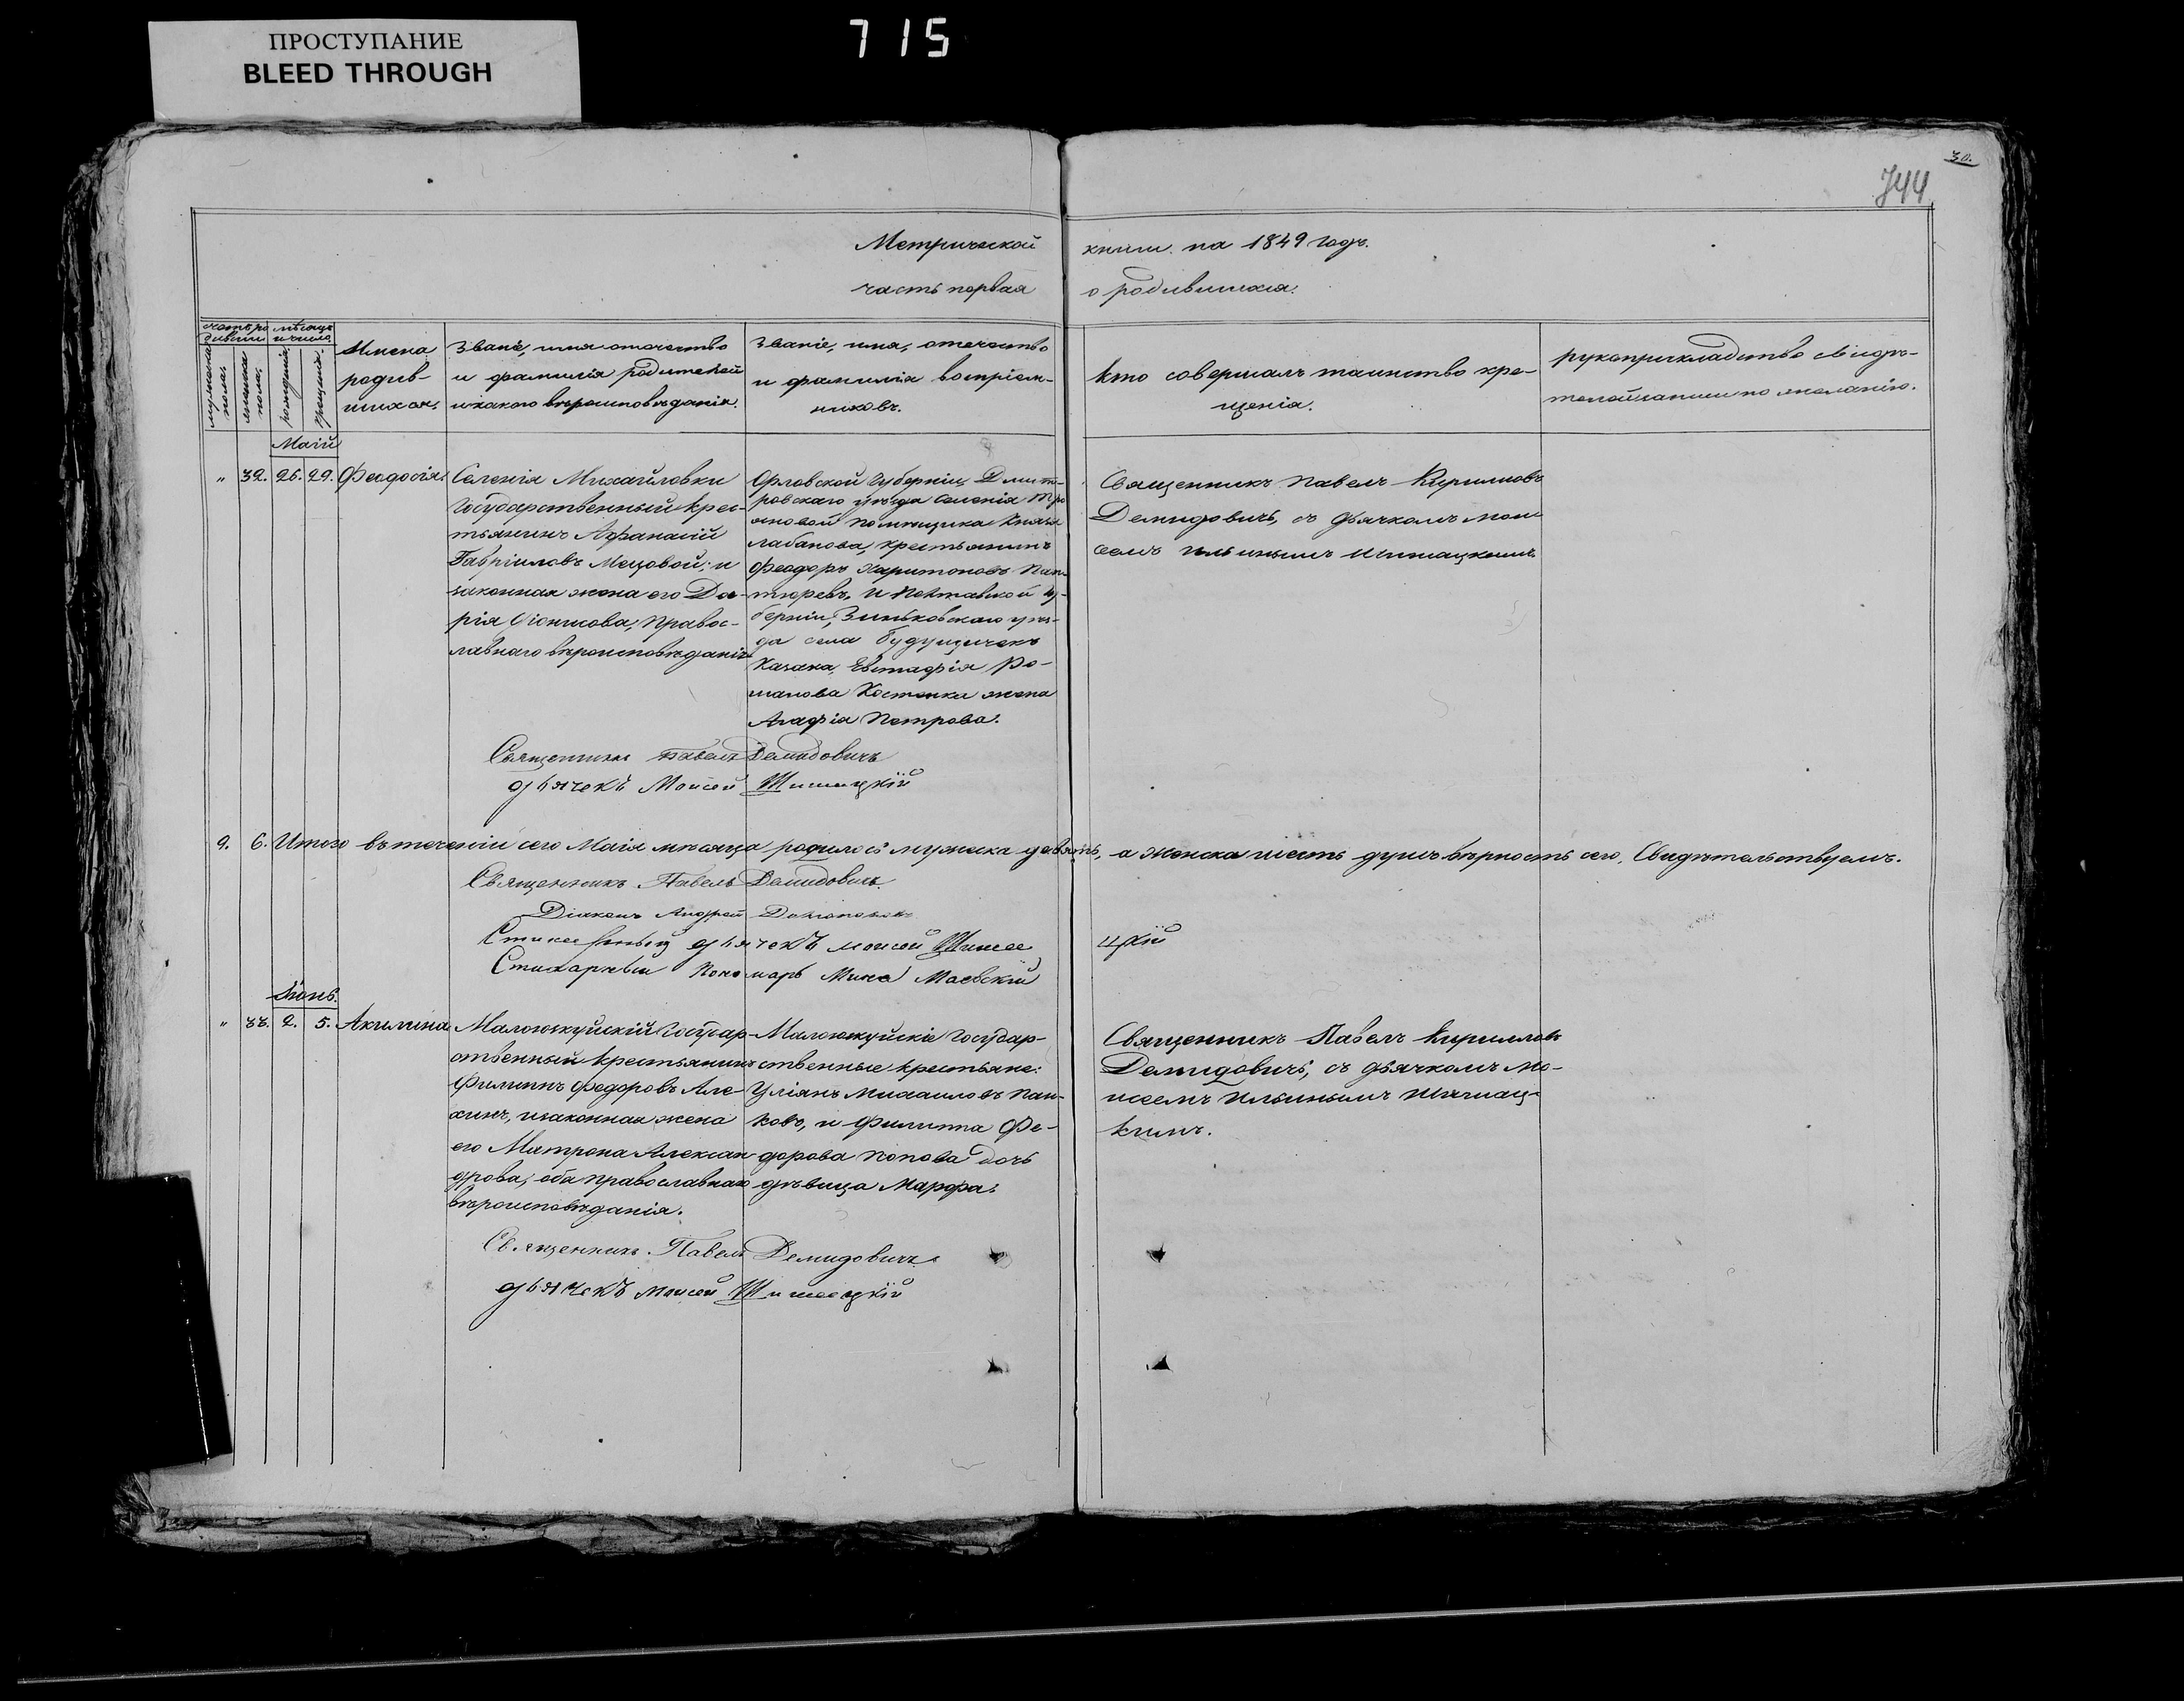 ПРОСТУПАНИЕ
BLEED THROUGH
715
30.
744
Метрической книги на 1849 годъ.
часть первая о родившихся.
счетъ родивших
мѣсяцъ и число
мужеска пола,
женска пола,
рожденія,
крещенія.
Имена родив-
шихся,
Званіе, имя отечество
и фамилія родителей
и какого вѣроисповѣданія.
Званіе, имя, отечество
и фамилія воспріем-
никовъ.
Кто совершалъ таинство кре-
щенія.
рукоприкладство свидѣ-
телей записи по желанію.
Маій
" 32. 26. 29. Феодосія.
Селенія Михайловки
Государственный крес-
тьянинъ Афанасій
Гавріиловъ Мецовой; и
законная жена его Да-
рія Діонисова, Правос-
лавнаго вѣроисповѣданія
Орловской Губерніи Дмит-
ровскаго уѣзда селенія Тро
яновой помѣщика Князя
Лабанова, крестьянинъ
Феодоръ Харитоновъ
и Полтавской гу-
берніи, Зиньковскаго уѣз-
да села Будущичекъ
Казака, Евстафія Ро-
манова Костенка жена
Агафія Петрова.
Священникъ Павелъ Кириловъ
Демидовичъ, съ дьячкомъ Мои
сеемъ Ильинымъ Шишацкимъ
Священникъ Павелъ Демидовичъ
дьячекъ Моисей Шишацкій
9. 6. Итого въ теченіи сего Маія мѣсяца родилось мужеска девять, а женска шесть душъ вѣрность сего, Свидѣтельствуемъ.
Священникъ Павелъ Демидовичъ
Діаконъ Андрей
Стихарный дьячекъ Моисей Шишацкій
Стихарный Пономарь Мина Маевскій
Іюнь.
" 33. 2. 5. Акилина
Малоюжуйскій Государ-
ственный крестьянинъ
Филиппъ Федоровъ Але-
хинъ, и законная жена
его Матрона Алексан-
дрова, оба православнаго
вѣроисповѣданія.
Малоюжуйскіе Государ-
ственные крестьяне:
Уліянъ Михаиловъ Пан-
ковъ, и Филиппа Фе-
дорова Попова дочь
дѣвица Марфа.
Священникъ Павелъ Кирилловъ
Демидовичъ, съ дьячкомъ Мо-
исеемъ Ильинымъ Шишац-
кимъ.
Священникъ Павелъ Демидовичъ
дьячекъ Моисей Шишацкій